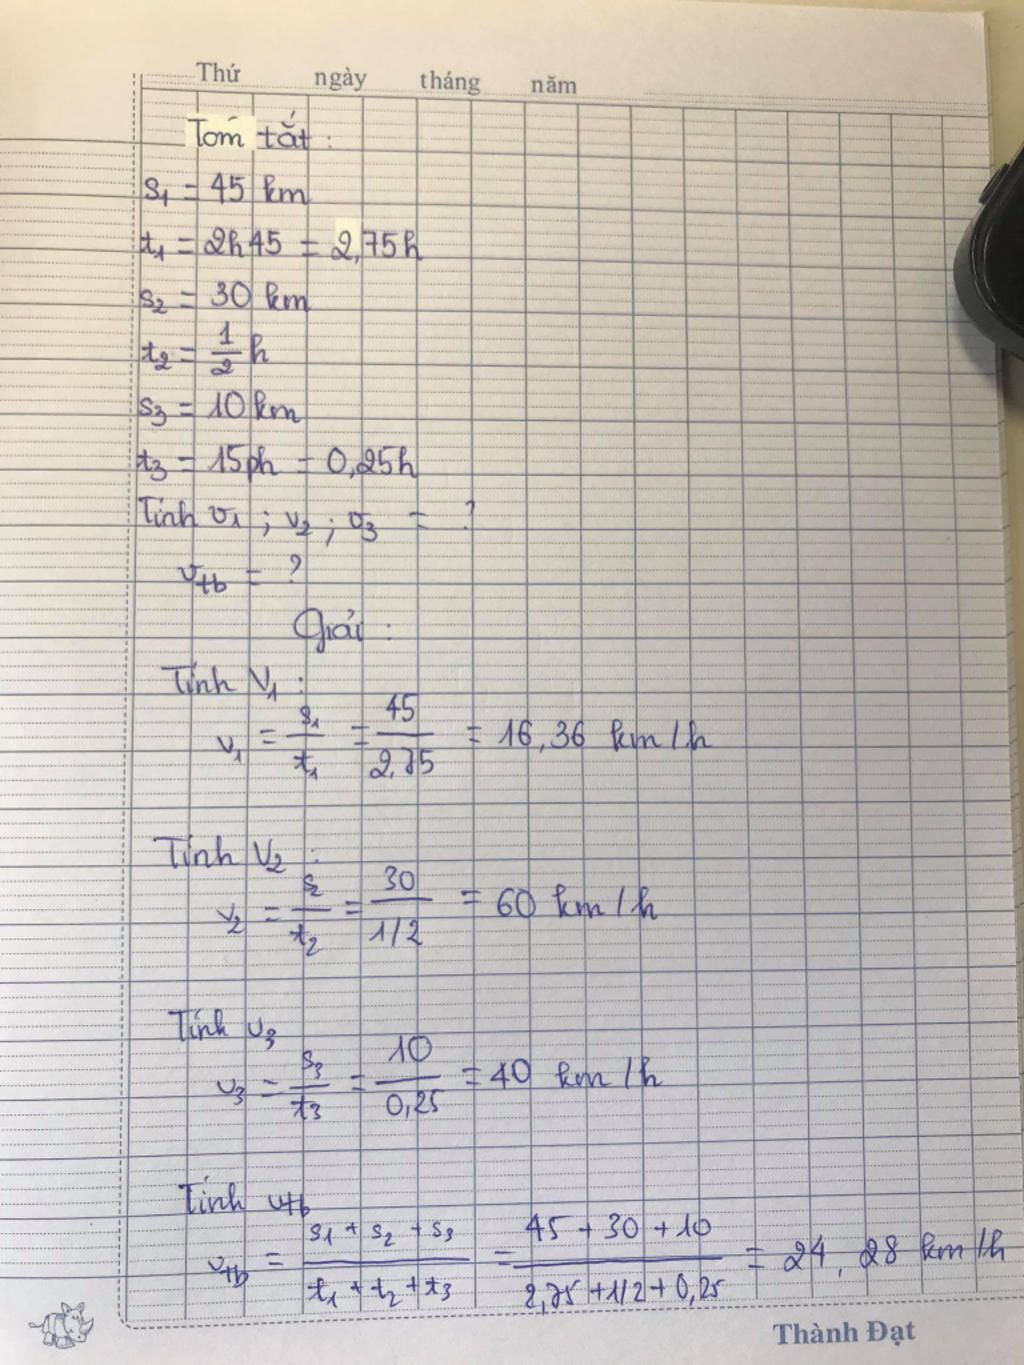 Thứ ngày tháng năm
Tóm tắt :
s1 = 45 km
t1 = 2h45 = 2,75h
s2 = 30 km
t2 = 1/2 h
s3 = 10 km
t3 = 15ph = 0,25h
Tính v1 ; v2 ; v3 = ?
vtb = ?
Giải :
Tính V1 :
v1 = s1/t1 = 45/2,75 = 16,36 km/h
Tính V2 :
v2 = s2/t2 = 30/1/2 = 60 km/h
Tính v3
v3 = s3/t3 = 10/0,25 = 40 km/h
Tính vtb
vtb = s1 + s2 + s3 / t1 + t2 + t3 = 45 + 30 + 10 / 2,75 + 1/2 + 0,25 = 24,28 km/h
Thành Đạt